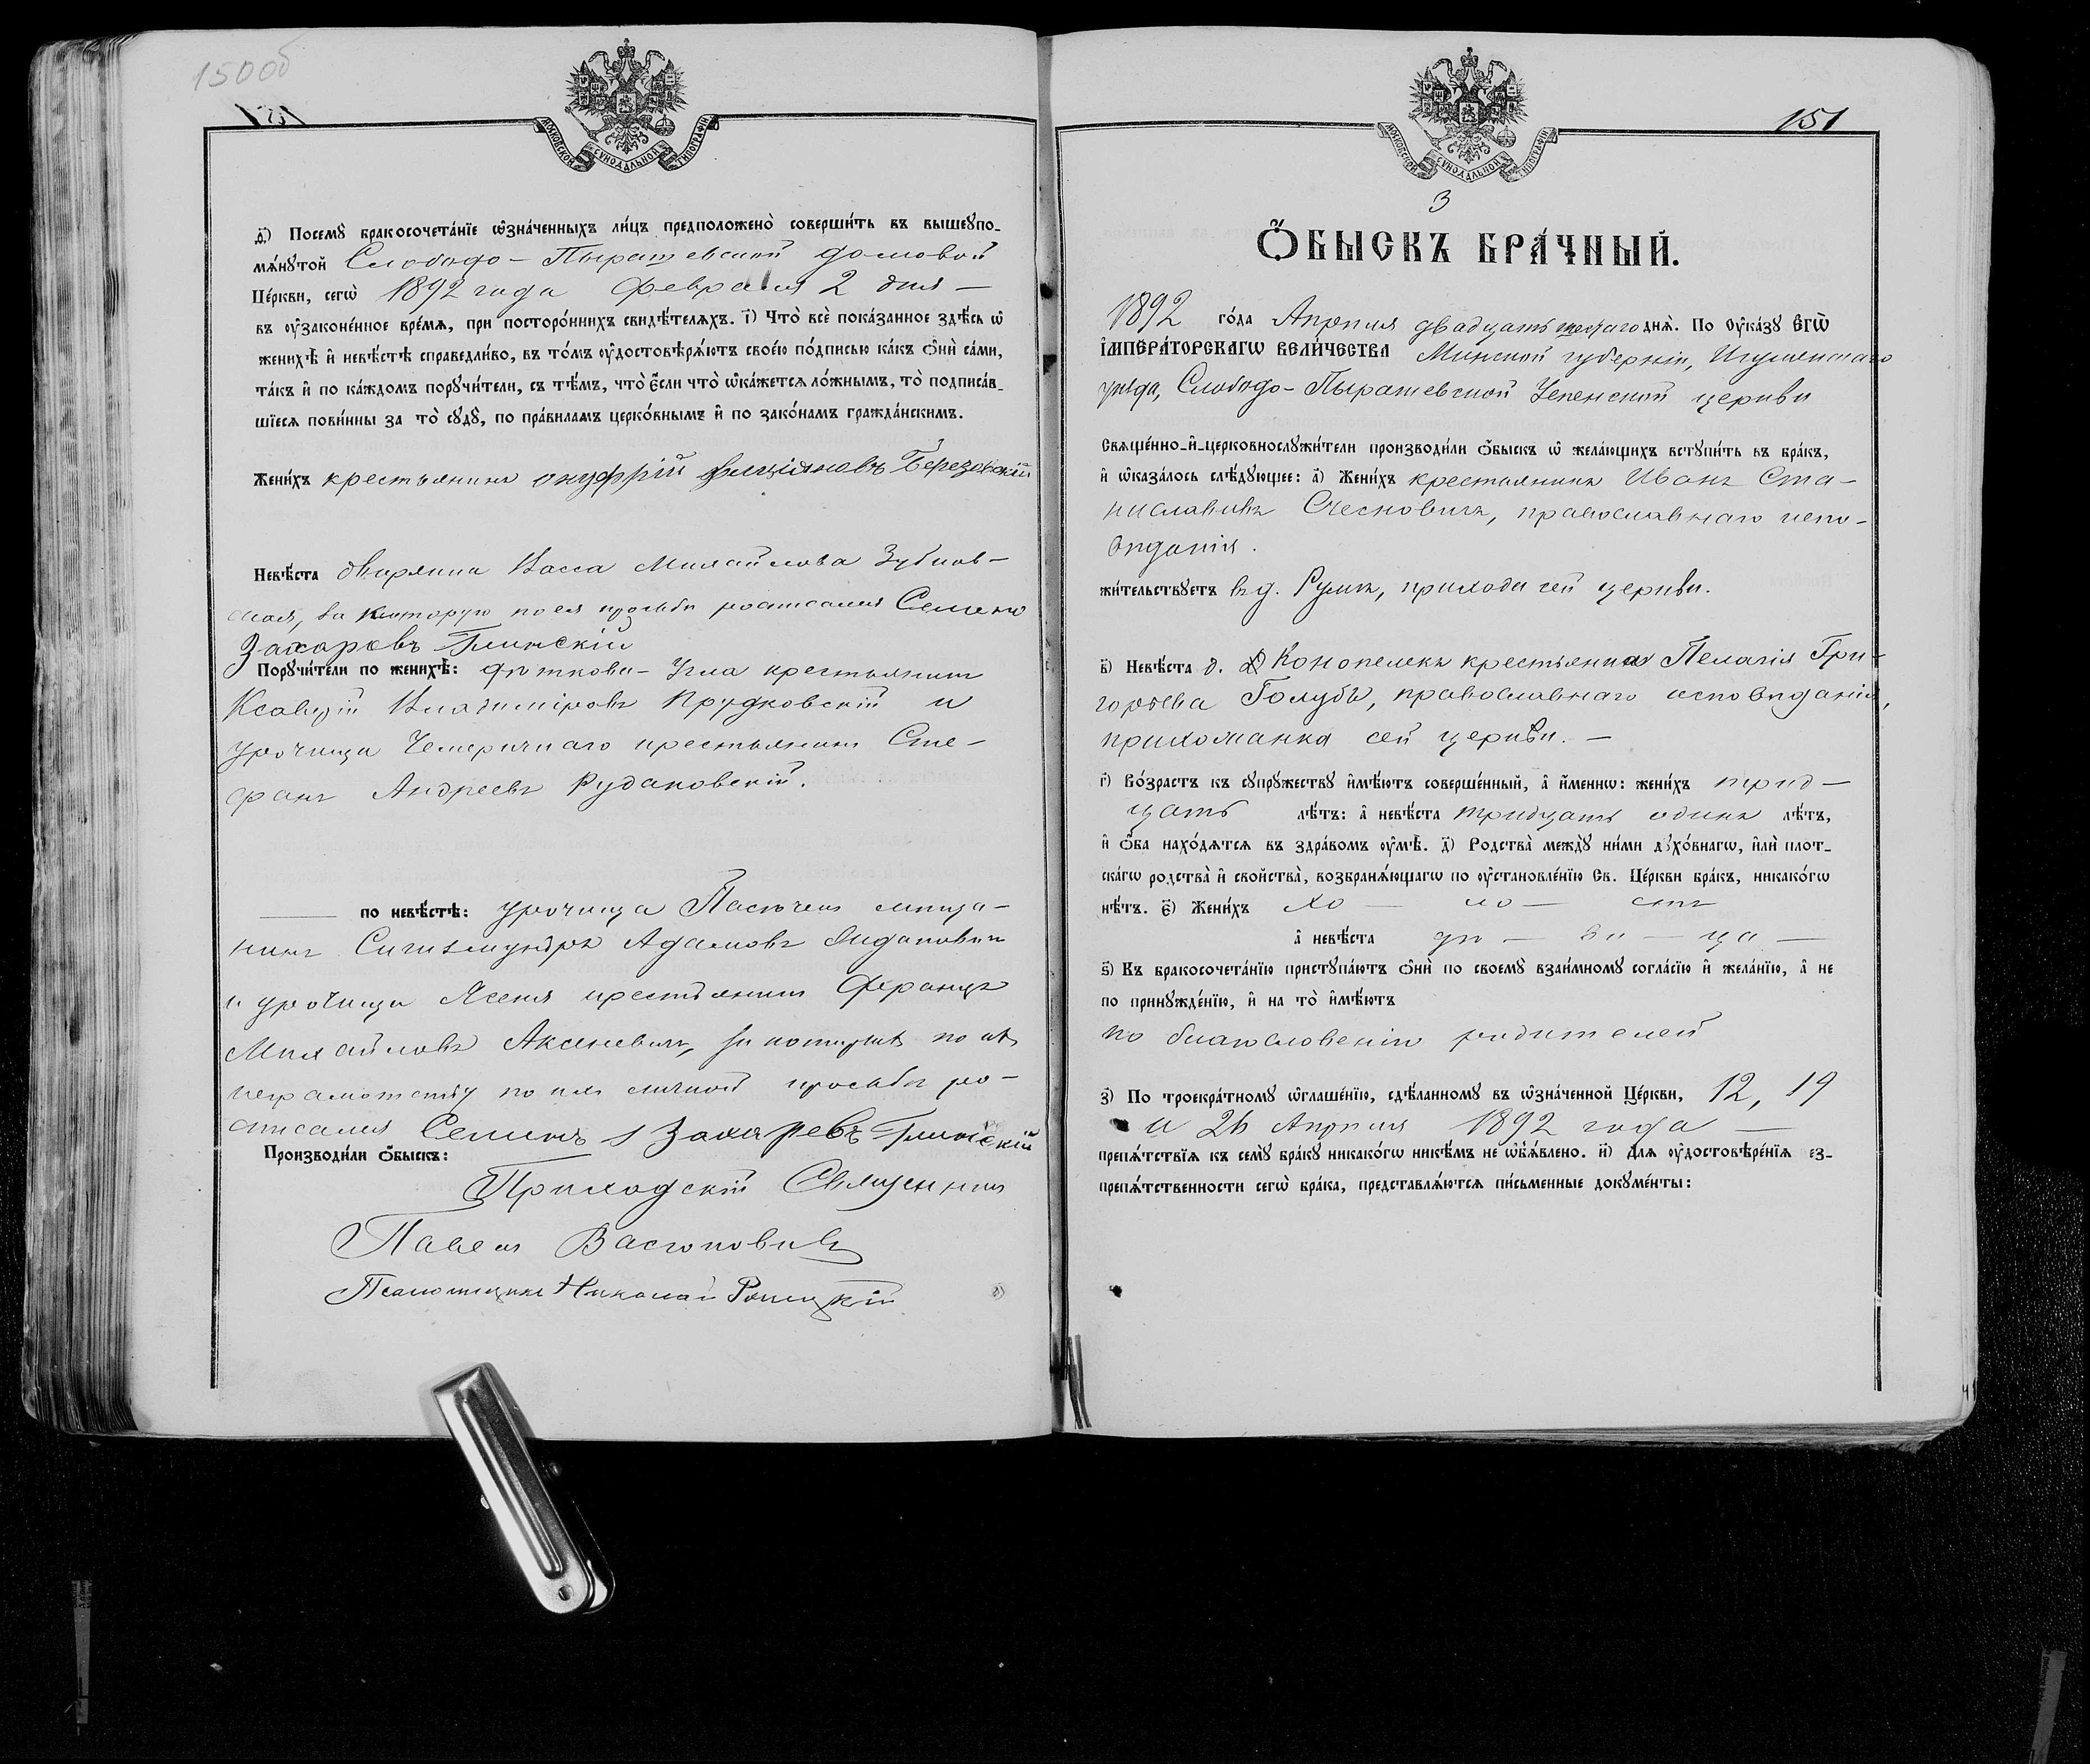 150об
151
МОСКОВСКОЙ СѴНОДАЛЬНОЙ ТИПОГРАФІИ
ѳ҃) Посемꙋ̀ бракосочета́нїе ѡ҆зна́ченныхъ ли́цъ предположено̀ соверши́ть въ вышеꙋпо-
мѧ́нꙋтой Слободо-Пырашевской домовой
Це́ркви, сегѡ̀ 1892 года Февраля 2 дня —
въ ᲂу҆законе́нное вре́мѧ, при посторо́ннихъ свидѣ́телѧхъ. і҃) Что̀ всѐ пока́занное здѣ́сь ѡ҆
женихѣ̀ и҆ невѣ́стѣ справедли́во, въ то́мъ ᲂу҆достовѣрѧ́ютъ свое́ю по́дписью ка́къ ѻ҆нѝ са́ми,
та́къ и҆ по ка́ждомъ порꙋчи́тели, съ тѣ́мъ, что̀ є҆́сли что̀ ѡ҆ка́жетсѧ ло́жнымъ, то̀ подписа́в-
шїесѧ пови́нны за то̀ сꙋдꙋ̀, по пра́виламъ церко́внымъ и҆ по зако́намъ гражда́нскимъ.
Жени́хъ крестьянинъ онуфрій Березовскій
Невѣ́ста дворянка Васса Михайлова Зубков-
ская, за которую по ея просьбѣ росписался Семенъ
Захаровъ Глинскій
Порꙋчи́тели по женихѣ̀: Фотькова-Угла крестьянинъ
Ксаверій Владиміровъ Прудковскій и
урочища Чемеричнаго крестьянинъ Сте-
фанъ Андреевъ Рудаковскій.
по невѣ́стѣ: урочища мѣща-
нинъ Сигизмундъ Адамовъ
и урочища Ясеня крестьянинъ Францъ
Михайловъ Аксеневичъ, за которыхъ по ихъ
неграмотству по ихъ личной просьбѣ ро-
списался Семенъ Захаревъ Глинскій
Производи́ли ѻ҆́быскъ:
Приходскій Священникъ
Павелъ Васюковичъ
Псаломщикъ Николай
151
МОСКОВСКОЙ СѴНОДАЛЬНОЙ ТИПОГРАФІИ
3
Ѻ҆́БЫСКЪ БРА́ЧНЫЙ.
1892 го́да Апрѣля двадцать шестаго днѧ̀. По Оу҆ка́зꙋ Є҆гѡ̀
І҆МПЕРА́ТОРСКАГѠ ВЕЛИ́ЧЕСТВА Минской губерніи, Игуменскаго
уѣзда, Слободо-Пырашевской Успенской церкви
Свѧще́нно-и҆-церковнослꙋжи́тели производи́ли ѻ҆́быскъ ѡ҆ жела́ющихъ встꙋпи́ть въ бра́къ,
и҆ ѡ҆каза́лось слѣ́дꙋющее: а҃) Жени́хъ крестьянинъ Иванъ Ста-
ниславовъ Счесновичъ, православнаго испо-
вѣданія.
жи́тельствꙋетъ въ д. прихода сей церкви.
в҃) Невѣ́ста д. Конопелекъ крестьянка Пелагія Гри-
горьева Голубъ, православнаго исповѣданія,
прихожанка сей церкви. —
г҃) Во́зрастъ къ сꙋпрꙋжествꙋ̀ и҆мѣ́ютъ соверше́нный, а҆ и҆́меннѡ: жени́хъ трид-
цать лѣ́тъ: а҆ невѣ́ста тридцать одинъ лѣ́тъ,
и҆ ѻ҆́ба нахо́дѧтсѧ въ здра́вомъ ᲂу҆мѣ̀. д҃) Родства̀ междꙋ̀ ни́ми дꙋхо́внагѡ, и҆лѝ плот-
ска́гѡ родства̀ и҆ свойства̀, возбранѧ́ющагѡ по ᲂу҆становле́нїю Св. Це́ркви бра́къ, никако́гѡ
нѣ́тъ. є҃) Жени́хъ хо — ло — стъ
а҆ невѣ́ста дѣ — ви — ца —
ѕ҃) Къ бракосочета́нїю пристꙋпа́ютъ ѻ҆нѝ по своемꙋ̀ взаи́мномꙋ согла́сїю и҆ жела́нїю, а҆ не
по принꙋжде́нїю, и҆ на то̀ и҆мѣ́ютъ
по благословенію родителей
з҃) По троекра́тномꙋ ѡ҆глаше́нїю, сдѣ́ланномꙋ въ ѡ҆зна́ченной Це́ркви, 12, 19
и 26 Апрѣля 1892 года —
препѧ́тствїѧ къ семꙋ̀ бра́кꙋ никако́гѡ никѣ́мъ не ѡ҆бъѧ́влено. и҃) Длѧ ᲂу҆достовѣре́нїѧ ез-
препѧ́тственности сегѡ̀ бра́ка, представлѧ́ютсѧ пи́сьменные докꙋме́нты: